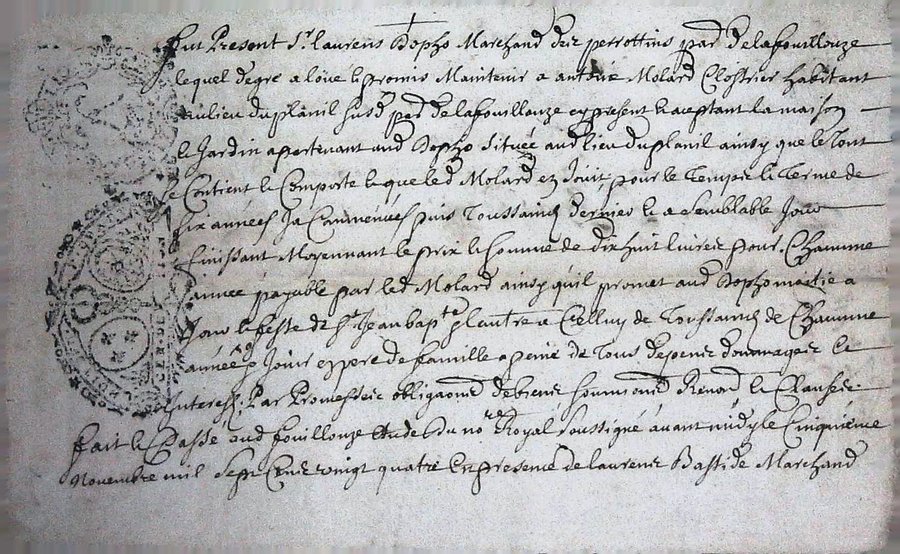 fut Present Sr laurens Dopho Marchand des perrottins par de lafouillouze
lequel degre a loué et promis Maintenir a antoine Molard Clostrier habitant
au lieu du planil susd par de lafouillouze cy present et aceptant la maison
et Jardin apartenant aud Dopho située aud lieu du planil ainsy que le Tout
se Contient et Comporte et que led Molard en Jouit, pour le Temps et Terme de
six années Ja Commencées puis Toussaincts dernier et a semblable Jour
finissant Moyennant le prix et somme de dix huit livres pour Chacune
année payable par led Molard ainsy qu'il promet aud Dopho moitie a
Jour et feste de St Jean bapte et l'autre a Celluy de Toussaincts de Chacune
année Jouir en pere de famille a peine de Tous depens dommages et
Interests, Par Promesses obligaons de biens soumissions Renons et Clauses
fait et Passé aud fouillouze Etude du nore Royal soussigné avant midy le Cinquieme
Novembre mil sept Cens vingt quatre En presence de laurens Bastide Marchand